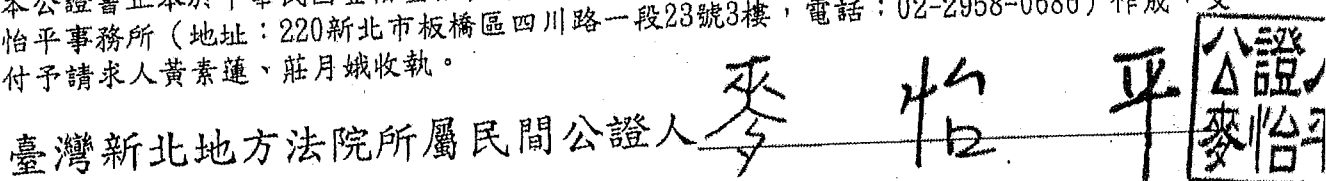 怡平事務所（地址：220新北市板橋區四川路一段23號3樓，電話：02-2958-0686）作成，
付予請求人黃素蓮、莊月娥收執。
臺灣新北地方法院所屬民間公證人 麥 怡 平
公證人
麥怡平